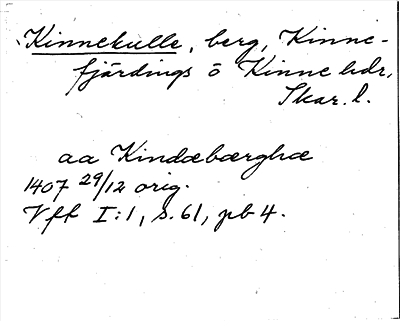 Kinnekulle, berg, Kinne-
fjärdings o Kinne hdr,
Skar. l.
aa Kindæbærghæ
1407 29/12 orig.
Vff I:1, s. 61, pb 4.